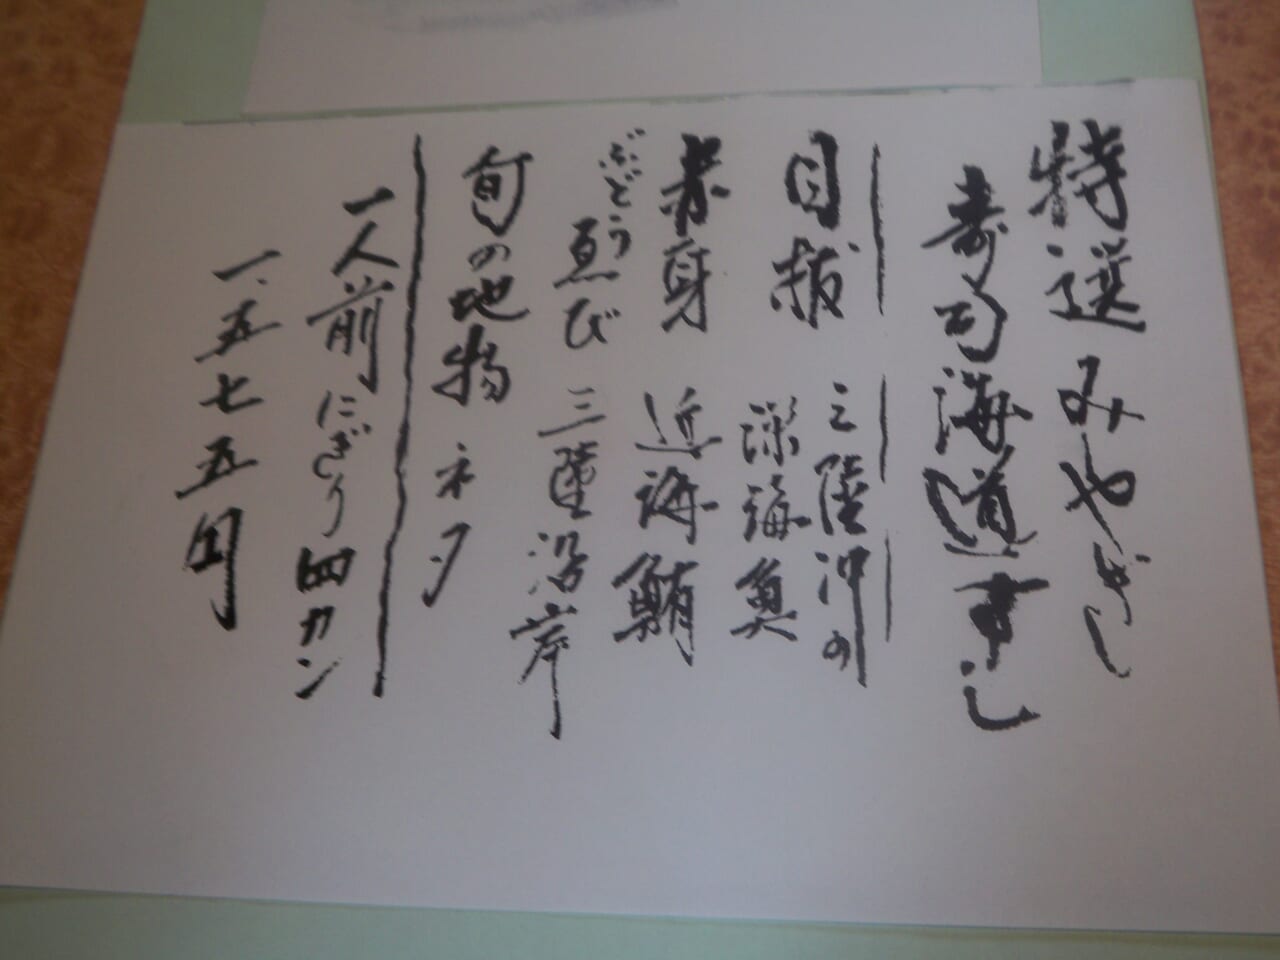 特選みやぎ
寿司海道すし
目抜 三陸沖の
深海魚
赤身 近海鮪
ぶどう
ゑび 三陸沿岸
旬の地物ネタ
一人前にぎり四カン
一、五七五円